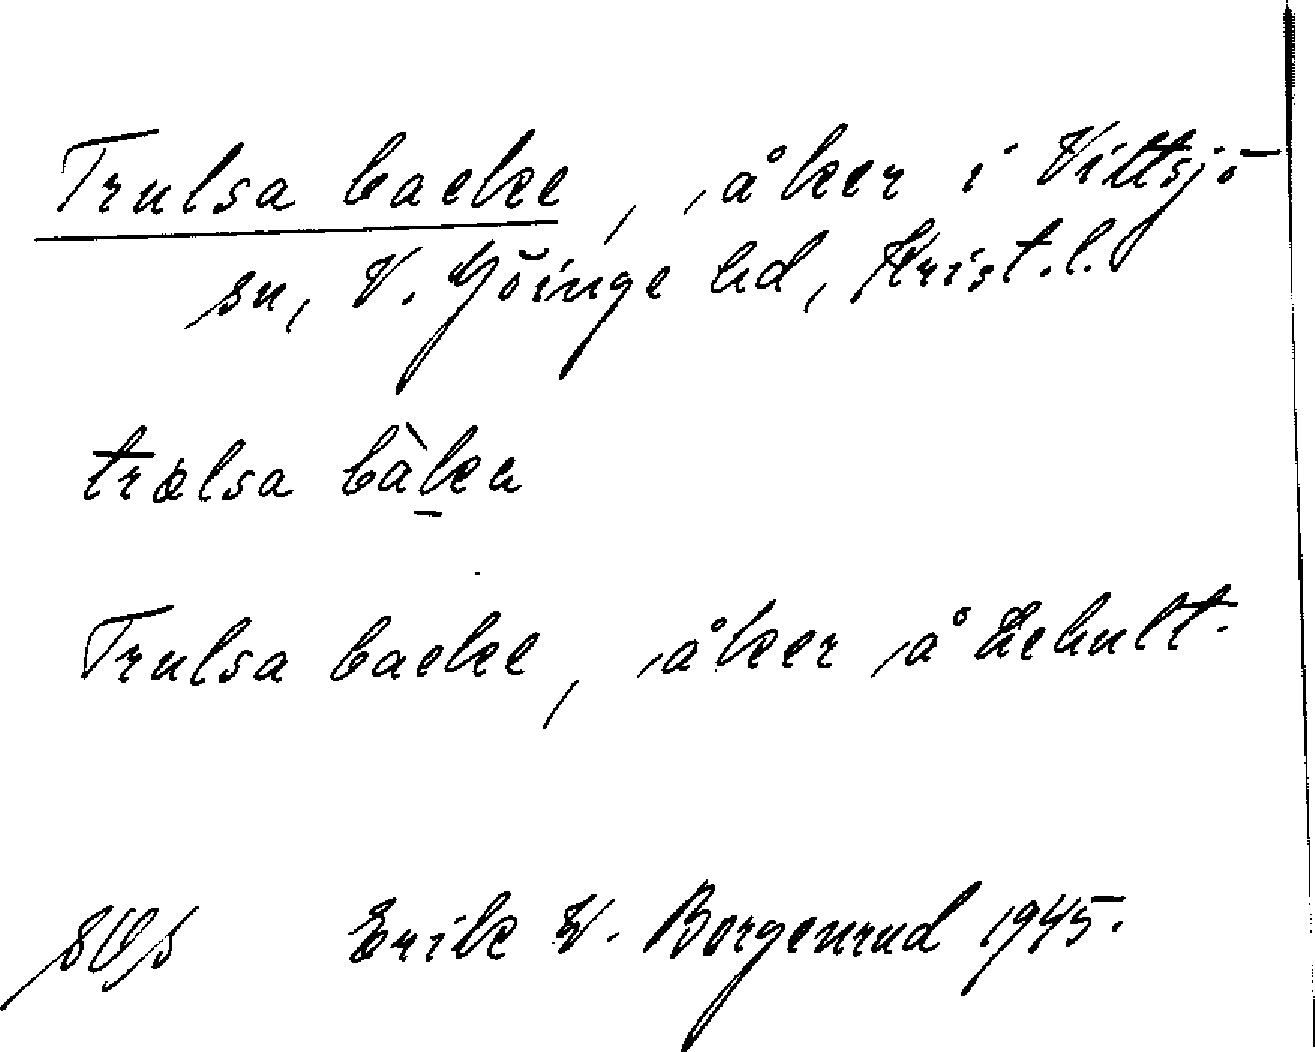 Trulsa backe, åker i Vittsjö
sn, V. Göinge hd, Krist. l.
trɷlsa bàkɑ
Trulsa backe, åker å Hehult.
Erik W. Borgenrud 1945.